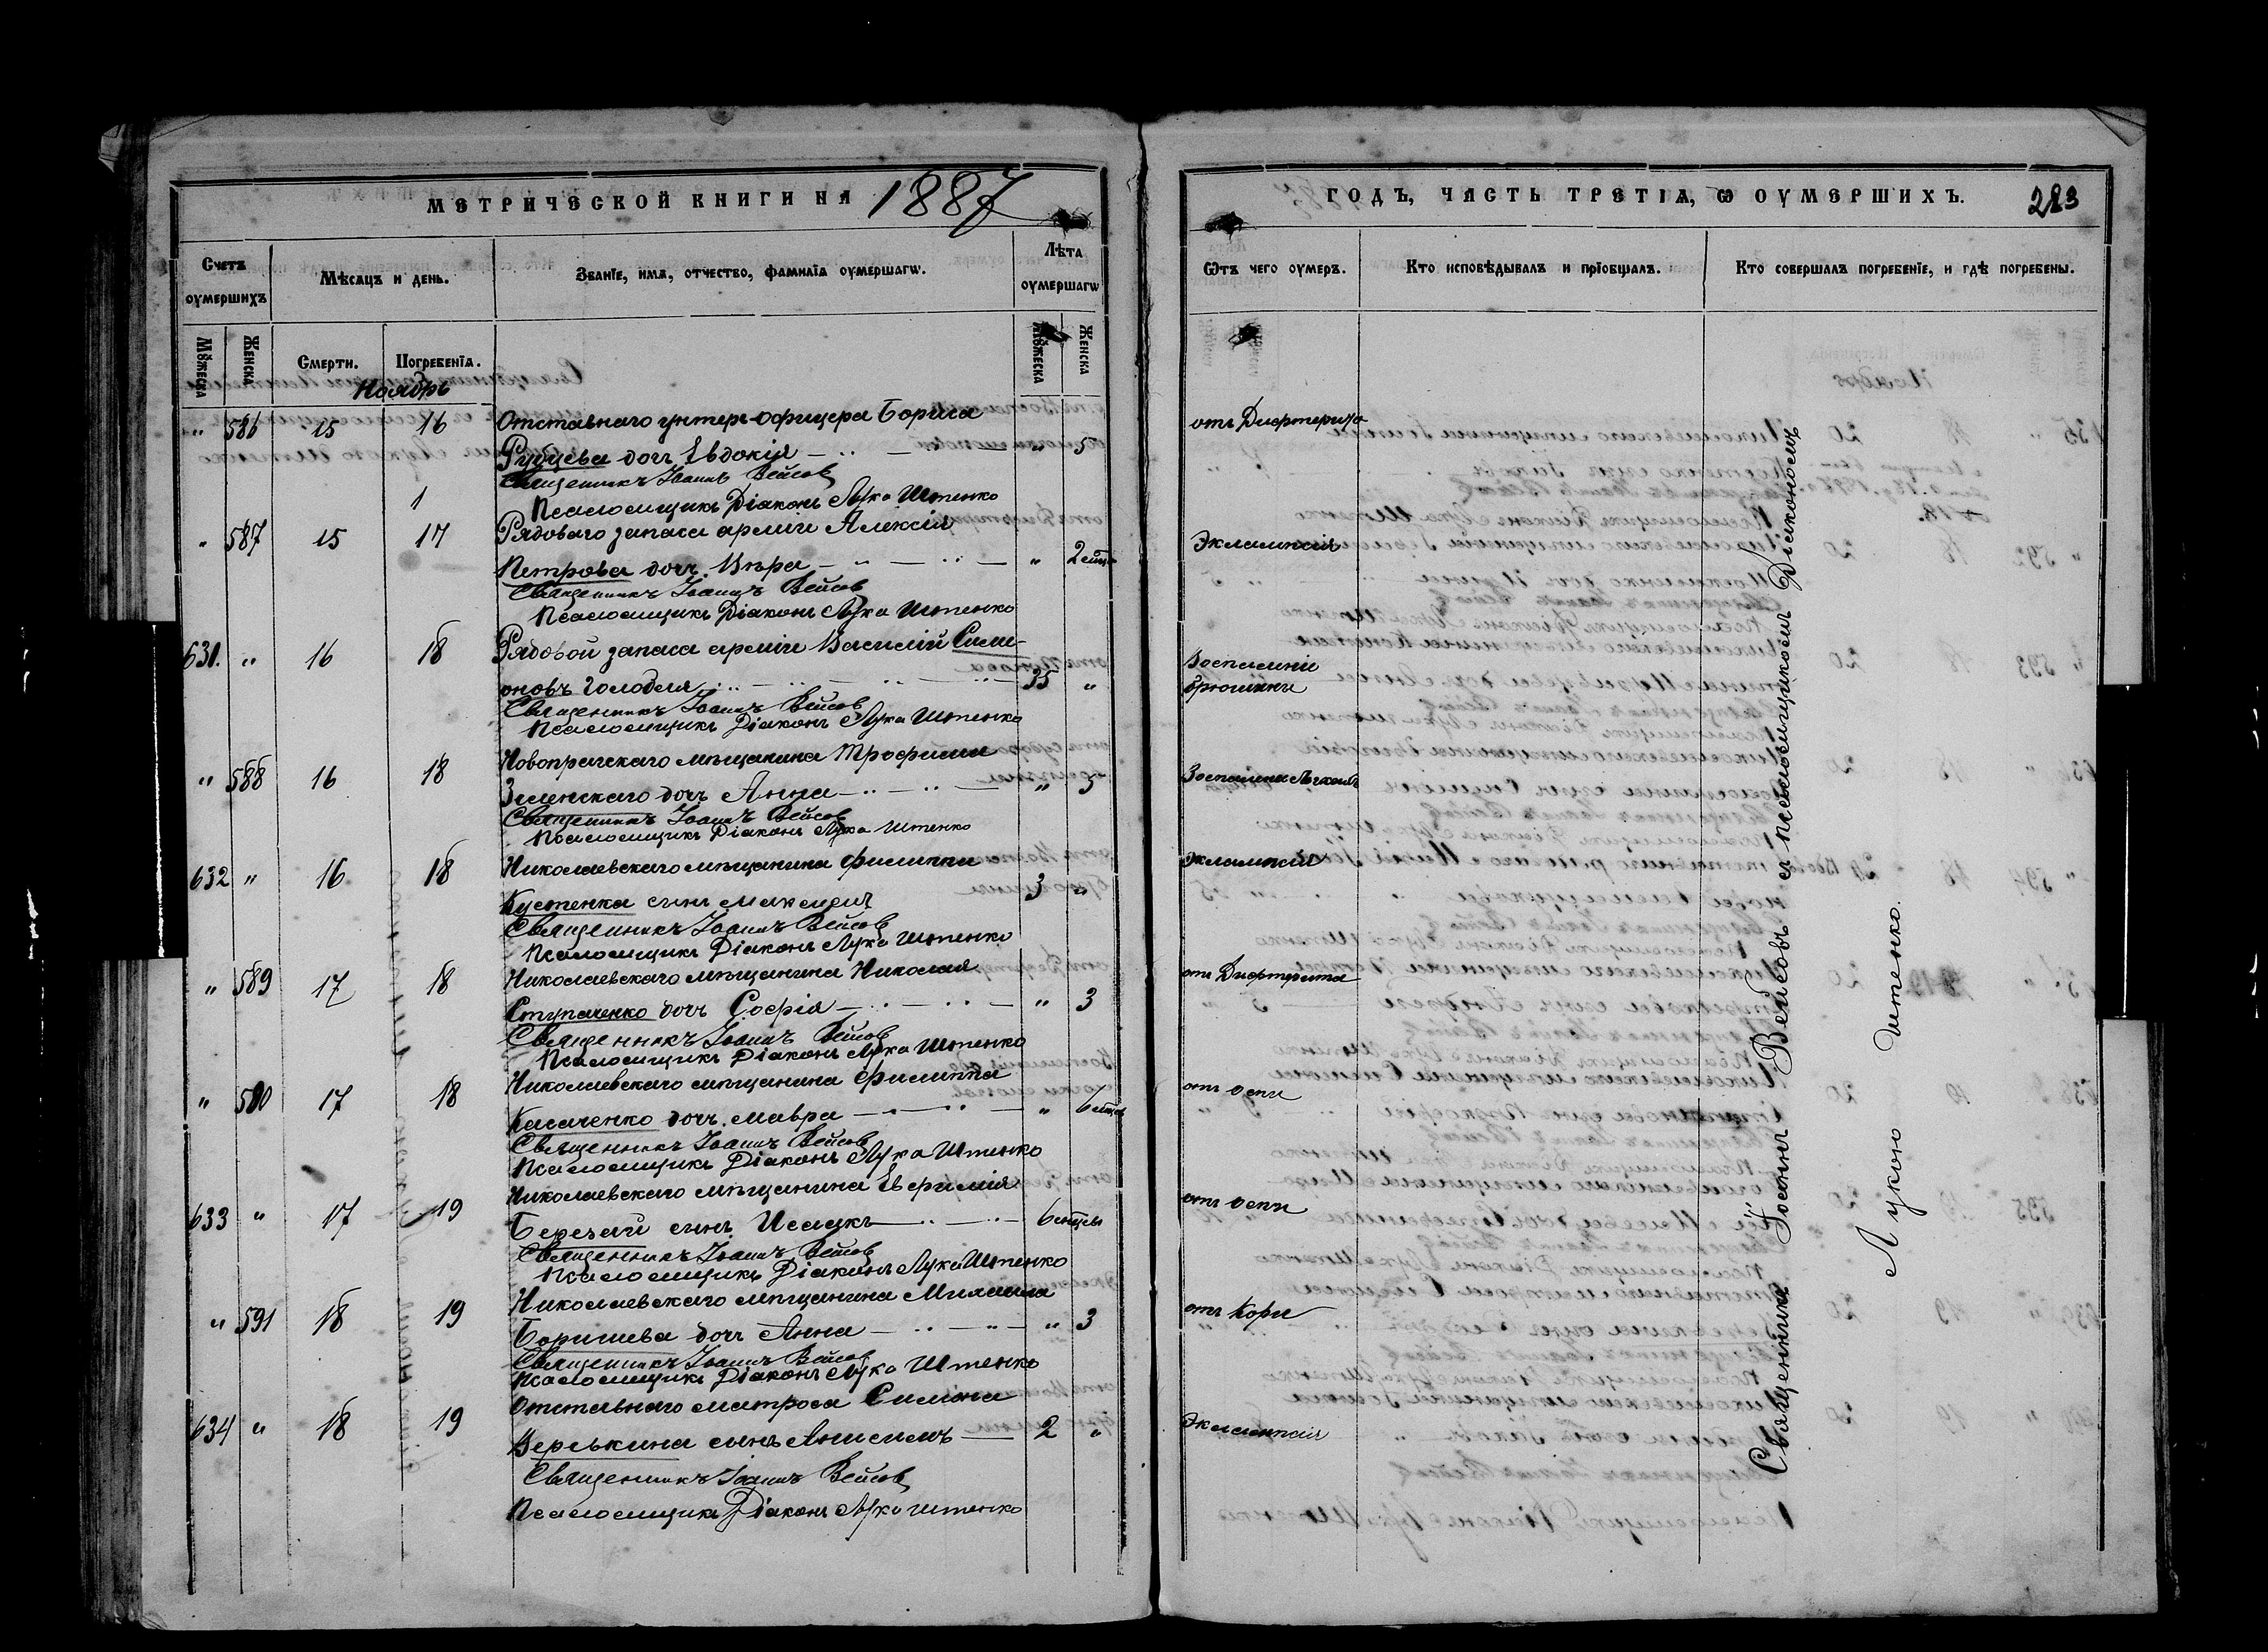 МЕТРИЧЕСКОЙ КНИГИ НА 1887
Счетъ оумершихъ
Мѣсяцъ и день.
Званіе, имя, отчество, фамилія оумершагѡ.
Лѣта оумершагѡ
Мꙋжеска
Женска
Смерти.
Погребенія.
Мꙋжеска
Женска
Ноябрь
" 586 15 16 Отставнаго унтеръ-офицера Бориса
Рубцева дочь Евдокія " 5
Священникъ Іоаннъ Вейсов
1 Псаломщикъ Діаконъ Лука Штенко
" 587 15 17 Рядоваго запаса арміи Алексія
Петрова дочь Вѣра " 2
Священникъ Іоаннъ Вейсов
Псаломщикъ Діаконъ Лука Штенко
631. " 16 18 Рядовой запаса арміи Василій Симе-
оновъ Голобля 35 "
Священникъ Іоаннъ Вейсов
Псаломщикъ Діаконъ Лука Штенко
" 588 16 18 Новопражскаго мѣщанина Трофима
Зеленскаго дочь Анна " 5
Священникъ Іоаннъ Вейсов
Псаломщикъ Діаконъ Лука Штенко
632 " 16 18 Николаевскаго мѣщанина Филиппа
Кустенка сынъ Максимъ 3 "
Священникъ Іоаннъ Вейсов
Псаломщикъ Діаконъ Лука Штенко
" 589 17 18 Николаевскаго мѣщанина Николая
Ступаченко дочь Софія " 3
Священникъ Іоаннъ Вейсов
Псаломщикъ Діаконъ Лука Штенко
" 590 17 18 Николаевскаго мѣщанина Филиппа
Касаченко дочь Мавра " 6
Священникъ Іоаннъ Вейсов
Псаломщикъ Діаконъ Лука Штенко
633 " 17 19 Николаевскаго мѣщанина Евфимія
Березай сынъ Исаакъ 6
Священникъ Іоаннъ Вейсов
Псаломщикъ Діаконъ Лука Штенко
" 591 18 19 Николаевскаго мѣщанина Михаила
Боришева дочь Анна " 3
Священникъ Іоаннъ Вейсов
Псаломщикъ Діаконъ Лука Штенко
634 " 18 19 Отставнаго матроса Симона
Верькина сынъ Анисимъ 2 "
Священникъ Іоаннъ Вейсов
Псаломщикъ Діаконъ Лука Штенко
ГОДЪ, ЧАСТЬ ТРЕТІѦ, Ѡ ОУМЕРШИХЪ. 283
Ѿтъ чего оумеръ.
Кто исповѣдывалъ и пріобщалъ.
Кто совершалъ погребеніе, и гдѣ погребены.
отъ Дифтерита
Эклампсія
Воспаленіе
брюшины
Воспаленіе легкихъ
Эклампсія
отъ Дифтерита
отъ оспы
отъ оспы
отъ Кори
Эклампсія
Священникъ Іоаннъ Вейсовъ съ псаломщикомъ Діакономъ
Лукою Штенко.